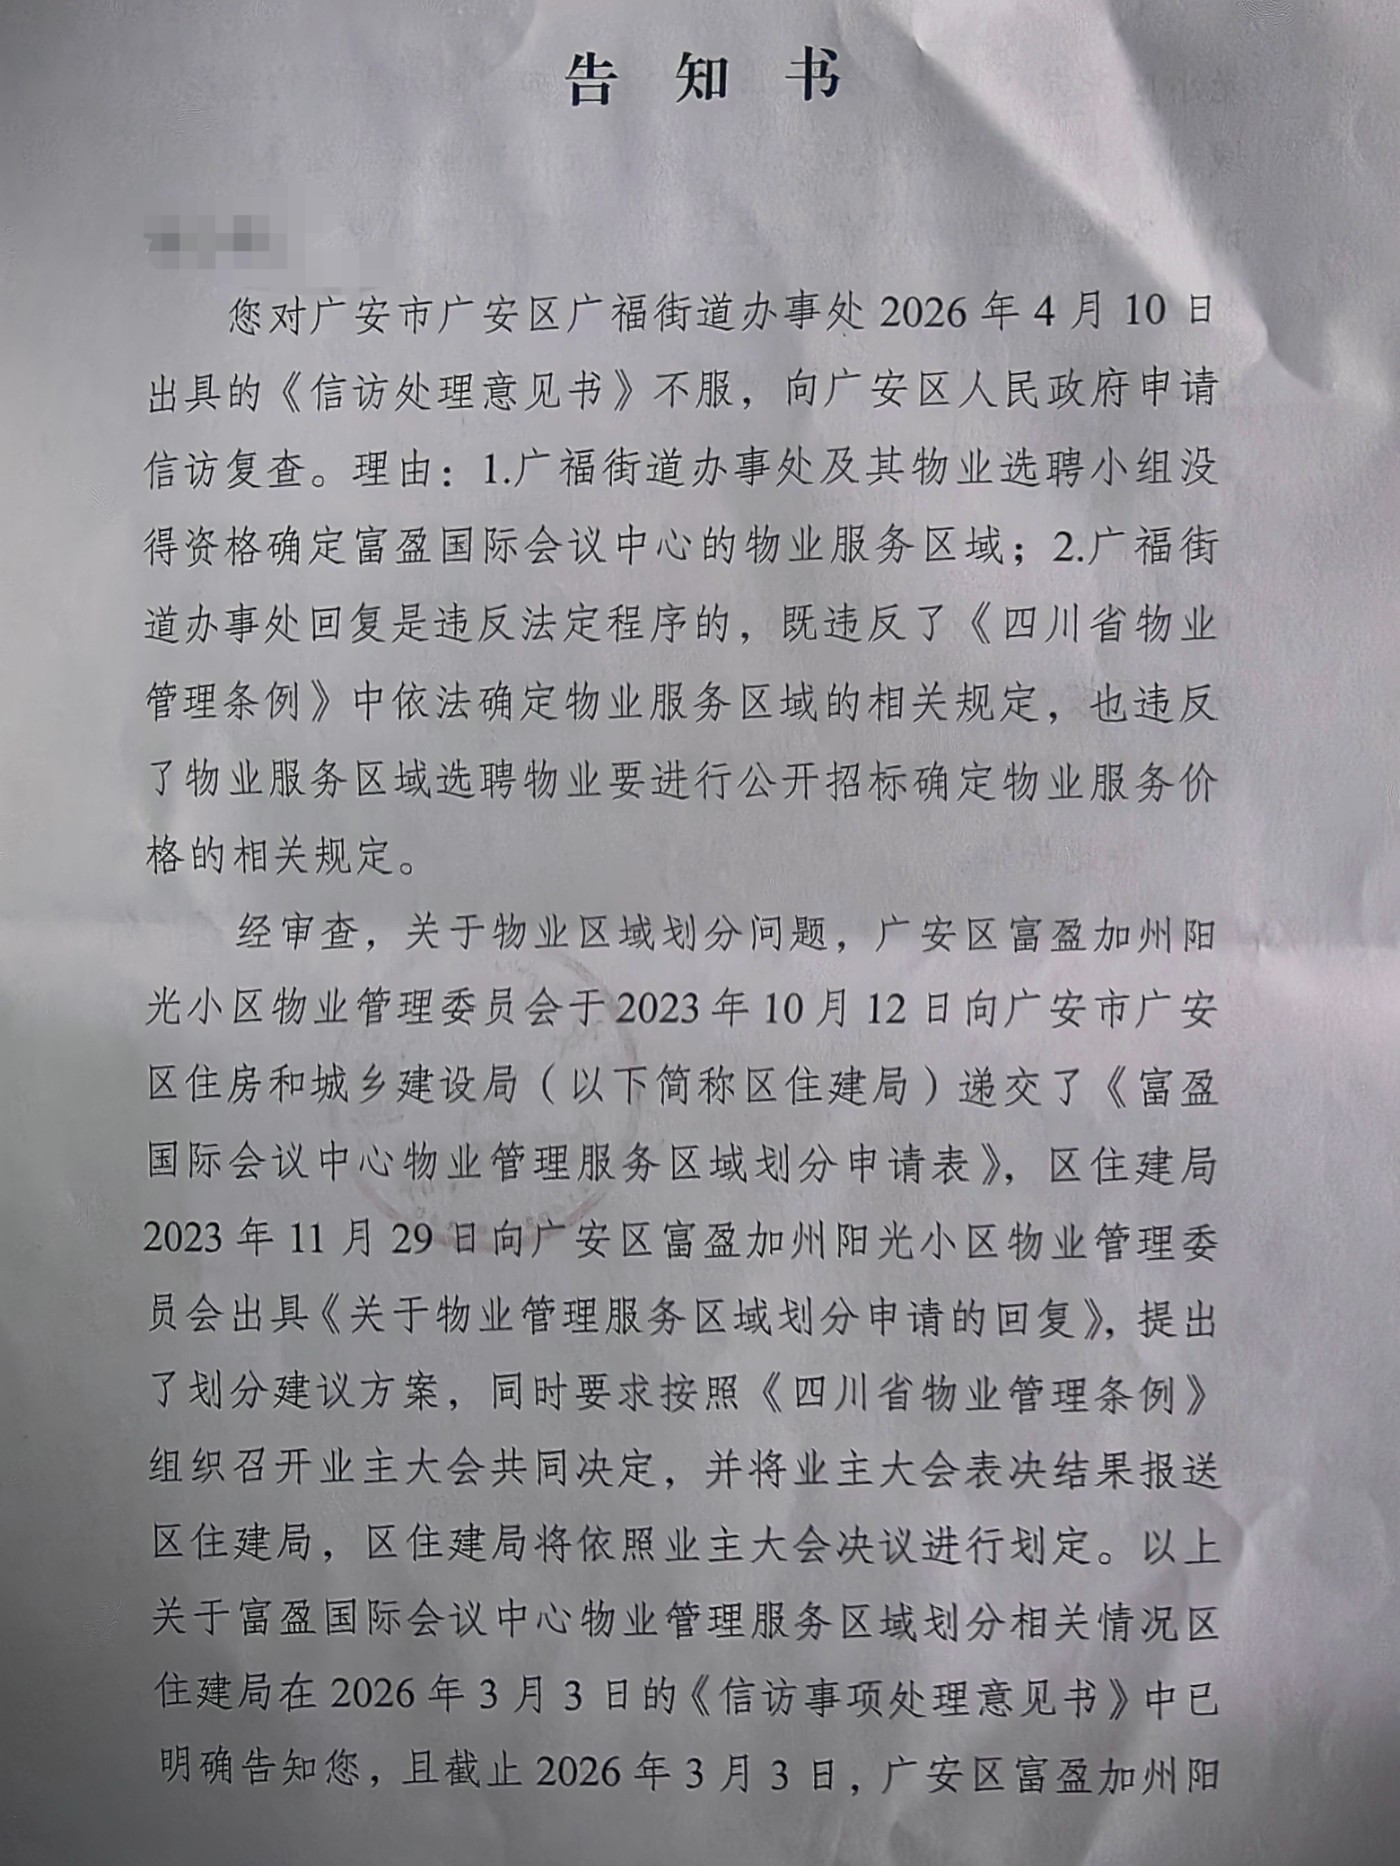 告知书
您对广安市广安区广福街道办事处 2026 年 4 月 10 日
出具的《信访处理意见书》不服，向广安区人民政府申请
信访复查。理由：1.广福街道办事处及其物业选聘小组没
得资格确定富盈国际会议中心的物业服务区域；2.广福街
道办事处回复是违反法定程序的，既违反了《四川省物业
管理条例》中依法确定物业服务区域的相关规定，也违反
了物业服务区域选聘物业要进行公开招标确定物业服务价
格的相关规定。
经审查，关于物业区域划分问题，广安区富盈加州阳
光小区物业管理委员会于 2023 年 10 月 12 日向广安市广安
区住房和城乡建设局（以下简称区住建局）递交了《富盈
国际会议中心物业管理服务区域划分申请表》，区住建局
2023 年 11 月 29 日向广安区富盈加州阳光小区物业管理委
员会出具《关于物业管理服务区域划分申请的回复》，提出
了划分建议方案，同时要求按照《四川省物业管理条例》
组织召开业主大会共同决定，并将业主大会表决结果报送
区住建局，区住建局将依照业主大会决议进行划定。以上
关于富盈国际会议中心物业管理服务区域划分相关情况区
住建局在 2026 年 3 月 3 日的《信访事项处理意见书》中已
明确告知您，且截止 2026 年 3 月 3 日，广安区富盈加州阳